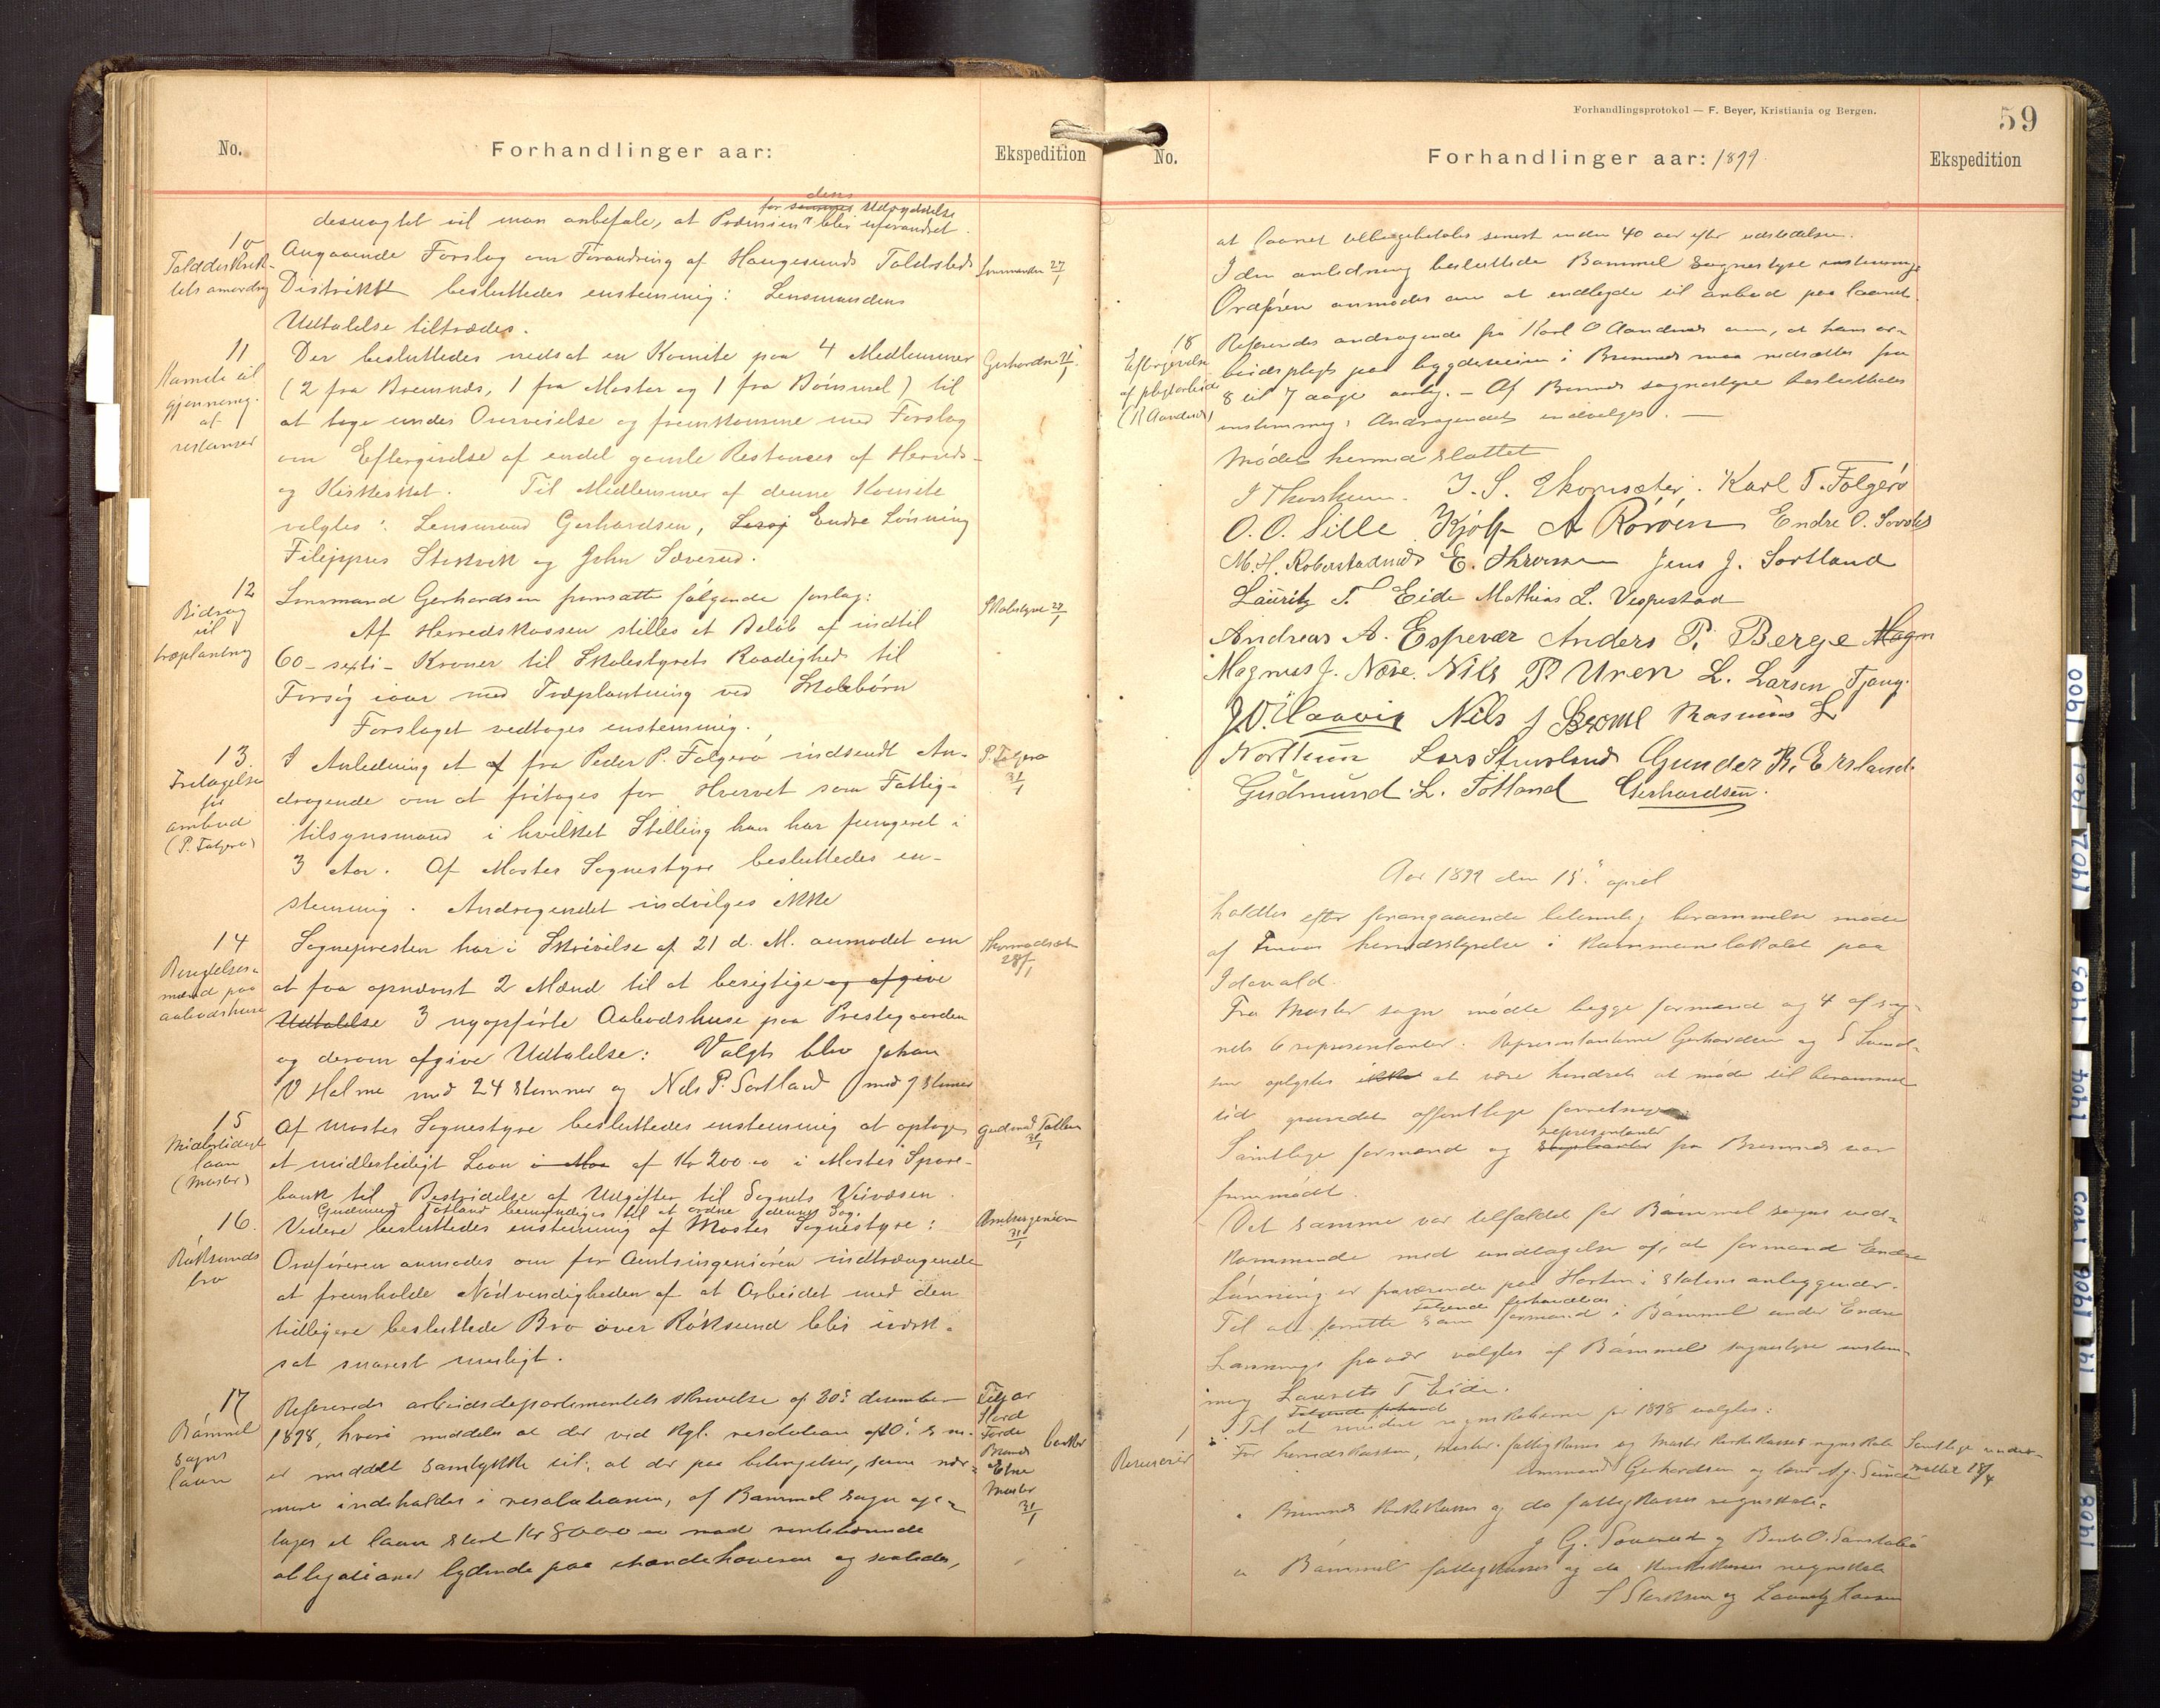 No.
Forhandlinger aar:
Ekspedition
dens
for samme Udrydelse
desuagtet vil man anbefale, at Præmien blir uforandret.
10
Tolddistriktets anordng
Angaaende Forslag om Forandring af Haugesunds Toldsteds
Lensmanden 27/1
Distrikt besluttedes enstemmig: Lensmandens
Udtalelse tiltrædes.
11
Komite til gjennemg. af restanser
Der besluttedes nedsat en Komite paa 4 Medlemmer
Gerhardsn 31/1
(2 fra Bremnes, 1 fra Moster og 1 fra Bömmel) til
at tage under Overveielse og fremkomme med Forslag
om Eftergivelse af endel gamle Restancer af Herreds-
og Kirkeskat. Til Medlemmer af denne Komite
valgtes: Lensmand Gerhardsen, Endre Lönning
Filippus Stokvik og John Sæverud.
12
Bidrag til træplantning
Lensmand Gerhardsen fremsatte følgende forslag:
Skolestyre 27/1
Af Herredskassen stilles et Beløb af indtil
60 - sexti - Kroner til Skolestyrets Raadighed til
Forsøg iaar med Træplantning ved Skolebørn
Forslaget vedtages enstemmig.
13
Fritagelse for ombud
(P. Folgerö)
I Anledning et af fra Peder P. Folgerö indsendt An-
P. Folgerö 31/1
dragende om at fritages for Hvervet som Fattig-
tilsynsmand i hvilket Stilling han har fungeret i
3 Aar. Af Moster Sognestyre besluttedes en-
stemmig. Andragendet indvilges ikke
14
Besigtelsesmænd paa aabodshuse
Sognepresten har i Skrivelse af 21 d. M. anmodet om
28/1
at faa opnævnt 2 Mænd til at besigtige og afgive
Udtalelse 3 nyopførte Aabodshuse paa Prestegaarden
og derom afgive Udtalelse: Valgt blev Johan
V Holme med 24 stemmer og Nels P. Sortland med 7 stemer
15
Midlertidigt laan
(Moster)
Af Moster Sognestyre besluttedes enstemmig at optage
Gudmd Totland 31/1
et midlertidigt Laan i Mos af Kr 200.00 i Moster Spare-
bank til Bestridelse af Udgifter til Sognets Veivæsen.
Gudmund Totland bemyndiges til at ordne denne Sag.
16.
Röksunds bro
Videre besluttedes enstemmig af Moster Sognestyre:
Amtsingeniøren 31/1
Ordføreren anmodes om for Amtsingeniøren indtrængende
at fremholde Nødvendigheden af at Arbeidet med den
tidligere besluttede Bro over Röksund blir iværk-
sat snarest muligt.
17
Bömmel sogns laan
Refereredes arbeidsdepartementets skrivelse af 30. desember
1898, hvori meddeles at der ved kgl. resolution af 10. s. m.
Stord
er meddelt samtykke til, at der paa betingelser, som nær-
Bremnes
Etne
Moster
31/1
mere indeholdes i resolutionen, af Bømmel sogn op-
tages et laan stort Kr 8000.00 mod rentebærende
obligationer lydende paa ihændehaveren og saaledes,
Forhandlingsprotokol — F. Beyer, Kristiania og Bergen.
59
No.
Forhandlinger aar: 1899.
Ekspedition
at laanet tilbagebetales senest inden 40 aar efter udstedelsen.
I den anledning besluttede Bømmel sognestyre enstemmig
Ordføren anmodes om at indbyde til anbud paa laanet.
18
Eftergivelse af pligtarbeide
(K Aandnes)
Refereredes andragende fra Karl O Aandnes om, at hans ar-
beidspligt paa bygdeveiene i Bremnes maa nedsættes fra
8 til 7 aarlig. – Af Bremnes sognestyre besluttedes
enstemmig: Andragendet indvilges. —
Mødet hermed sluttet
J Thorsheim. Karl T. Folgerö
O. O. Lille A Röröen Endre O.
M. H. Roberstadnes Jens J. Sortland
Lauritz T. Eide Mathias L. Vespestad
Andreas A. Espevær Anders P. Berge Magn
Magnus J. Næse. Nils P Uren L. Larsen Tjong.
Nils J Rasmus L
Nortun Lars Gunder R. Ersland.
Gudmund L. Totland Gerhardsen.
Aar 1899 den 15. april
holdtes efter forangaaende berammelse møde
af herredsstyrelse i kommunelokalet paa
Idavald.
Fra Moster sogn mødte begge formænd og 4 af sog-
nets 6 representanter. Representanterne Gerhardsen og
oplystes ikke at være hindrede at møde til berammet
tid grundet offentlige forretninger.
representanter
Samtlige formænd og suplanter fra Bremnes var
fremmødt.
Det samme var tilfældet for Bømmel sogns ved-
kommende med undtagelse af, at formand Endre
Lønning er fraværende paa Horten i statens anliggender.
Til at forrette som formand i Bømmel under Endre
Lønnings fravær valgtes af Bømmel sognestyre enstem-
mig Laurits T Eide.
1
Revisorer
Til at revidere regnskaberne for 1898 valgtes:
For herredskassen, Moster fattigkasses og Moster kirkekasses regnskab
Samtlige underrettet 18/4
Gerhardsen og
" Bremnes kirkekasses og do fattigkasses regnskab:
" Bømmel fattigkasses og do kirkekasses regnskab
1900
1901
1902
1903
1904
1905
1906
1908